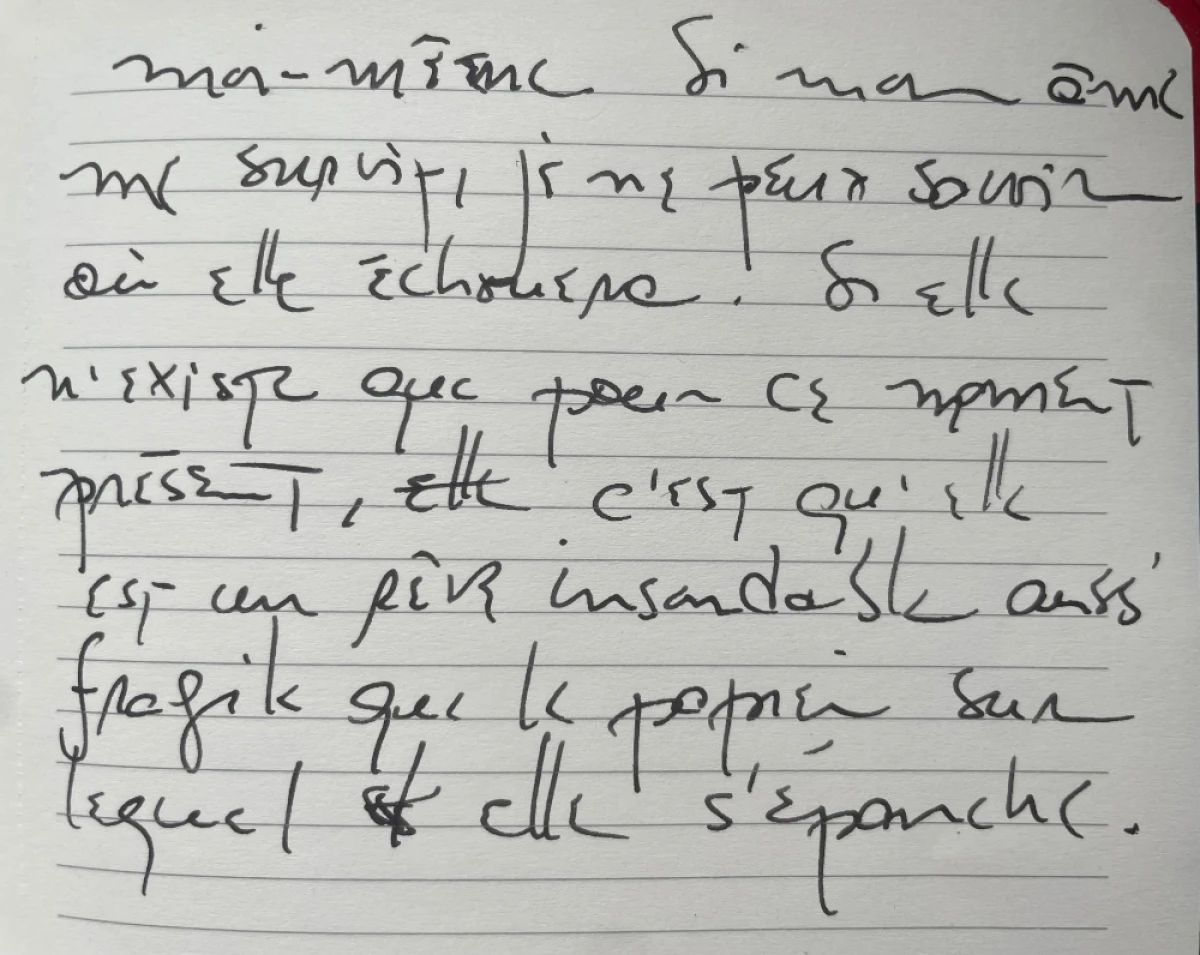 moi-même. Si mon âme
me survit, je ne peux savoir
où elle échouera. Si elle
n'existe que pour ce moment
présent, elle c'est qu'elle
est un rêve insondable aussi
fragile que le papier sur
lequel elle s'épanche.